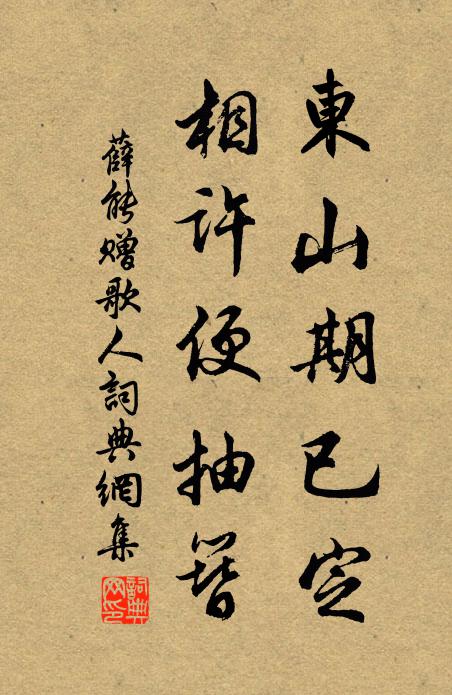 東山期已定
相許便抽簪
薛能贈歌人詞典網集
詞典網印